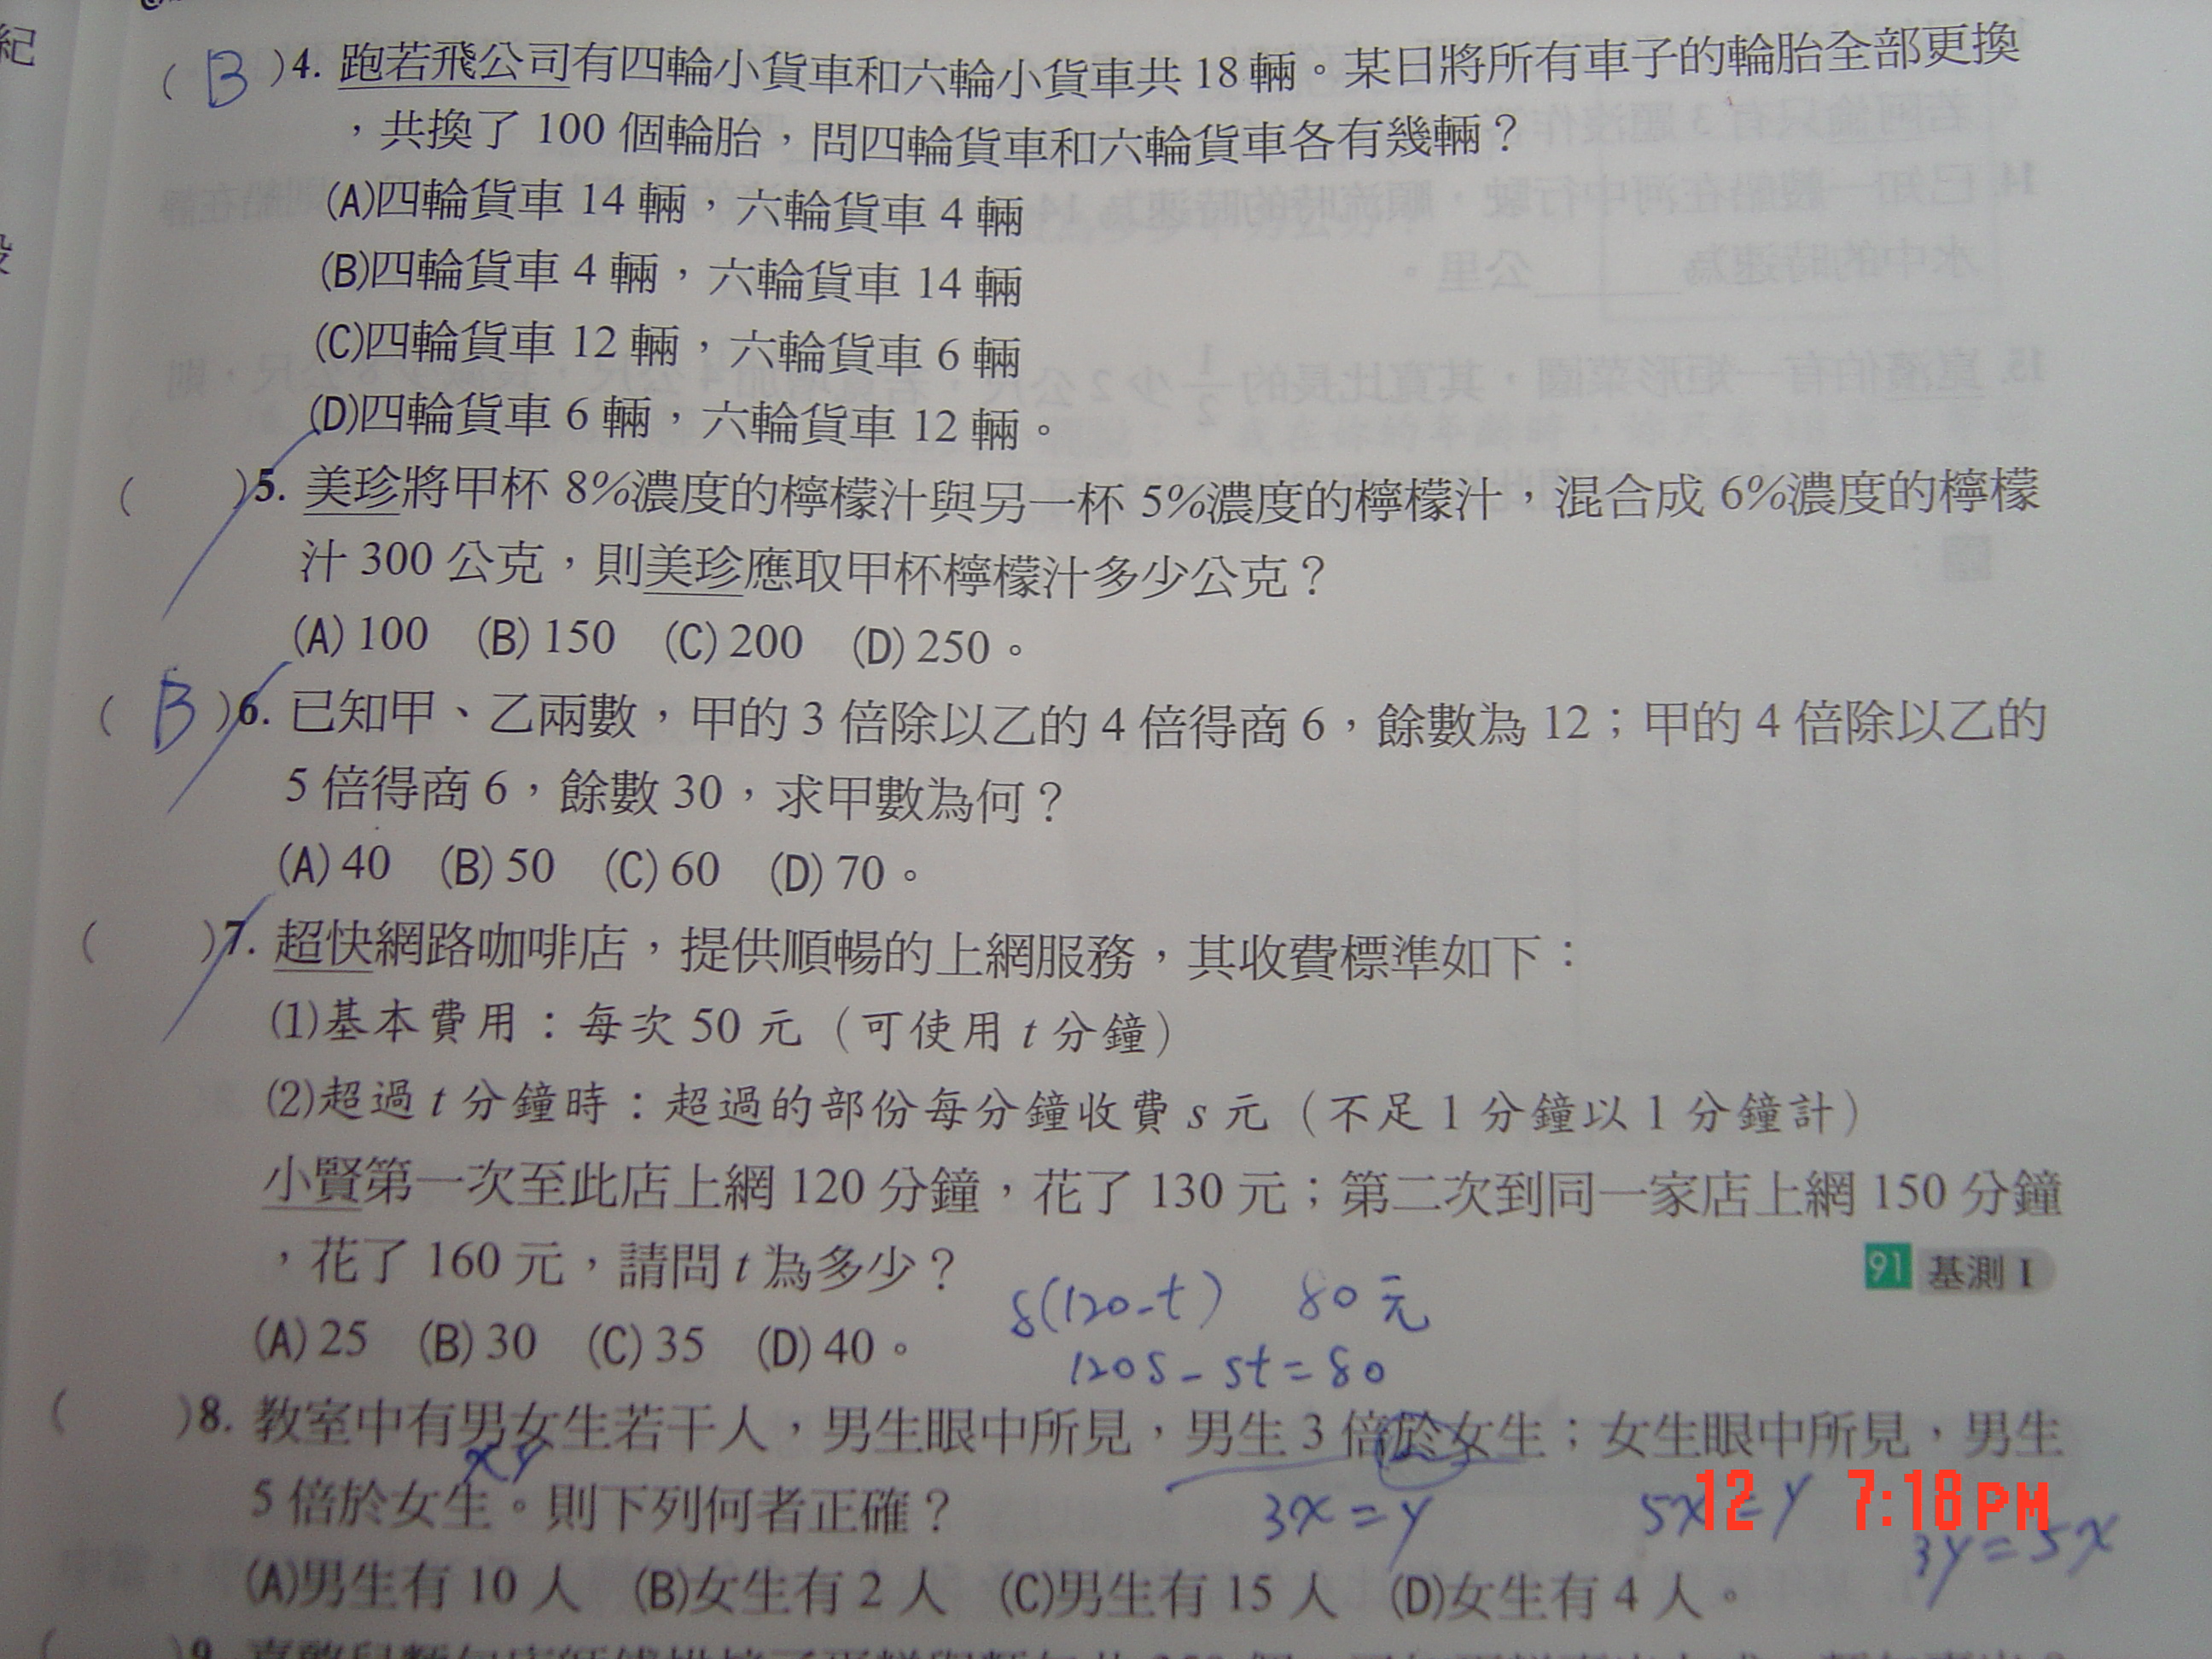 紀
( B )4. 跑若飛公司有四輪小貨車和六輪小貨車共 18 輛。某日將所有車子的輪胎全部更換
，共換了 100 個輪胎，問四輪貨車和六輪貨車各有幾輛？
(A)四輪貨車 14 輛，六輪貨車 4 輛
(B)四輪貨車 4 輛，六輪貨車 14 輛
(C)四輪貨車 12 輛，六輪貨車 6 輛
(D)四輪貨車 6 輛，六輪貨車 12 輛。
( )5. 美珍將甲杯 8%濃度的檸檬汁與另一杯 5%濃度的檸檬汁，混合成 6%濃度的檸檬
汁 300 公克，則美珍應取甲杯檸檬汁多少公克？
(A) 100 (B) 150 (C) 200 (D) 250。
( B )6. 已知甲、乙兩數，甲的 3 倍除以乙的 4 倍得商 6，餘數為 12；甲的 4 倍除以乙的
5 倍得商 6，餘數 30，求甲數為何？
(A) 40 (B) 50 (C) 60 (D) 70。
( )7. 超快網路咖啡店，提供順暢的上網服務，其收費標準如下：
(1)基本費用：每次 50 元（可使用 t 分鐘）
(2)超過 t 分鐘時：超過的部份每分鐘收費 s 元（不足 1 分鐘以 1 分鐘計）
小賢第一次至此店上網 120 分鐘，花了 130 元；第二次到同一家店上網 150 分鐘
，花了 160 元，請問 t 為多少？
91 基測 I
s(120-t) 80元
(A) 25 (B) 30 (C) 35 (D) 40。
120s-st=80
( )8. 教室中有男女生若干人，男生眼中所見，男生 3 倍於女生；女生眼中所見，男生
x y
5 倍於女生。則下列何者正確？
3x=y 5x=y
12 7:18PM
3y=5x
(A)男生有 10 人 (B)女生有 2 人 (C)男生有 15 人 (D)女生有 4 人。
( )9.